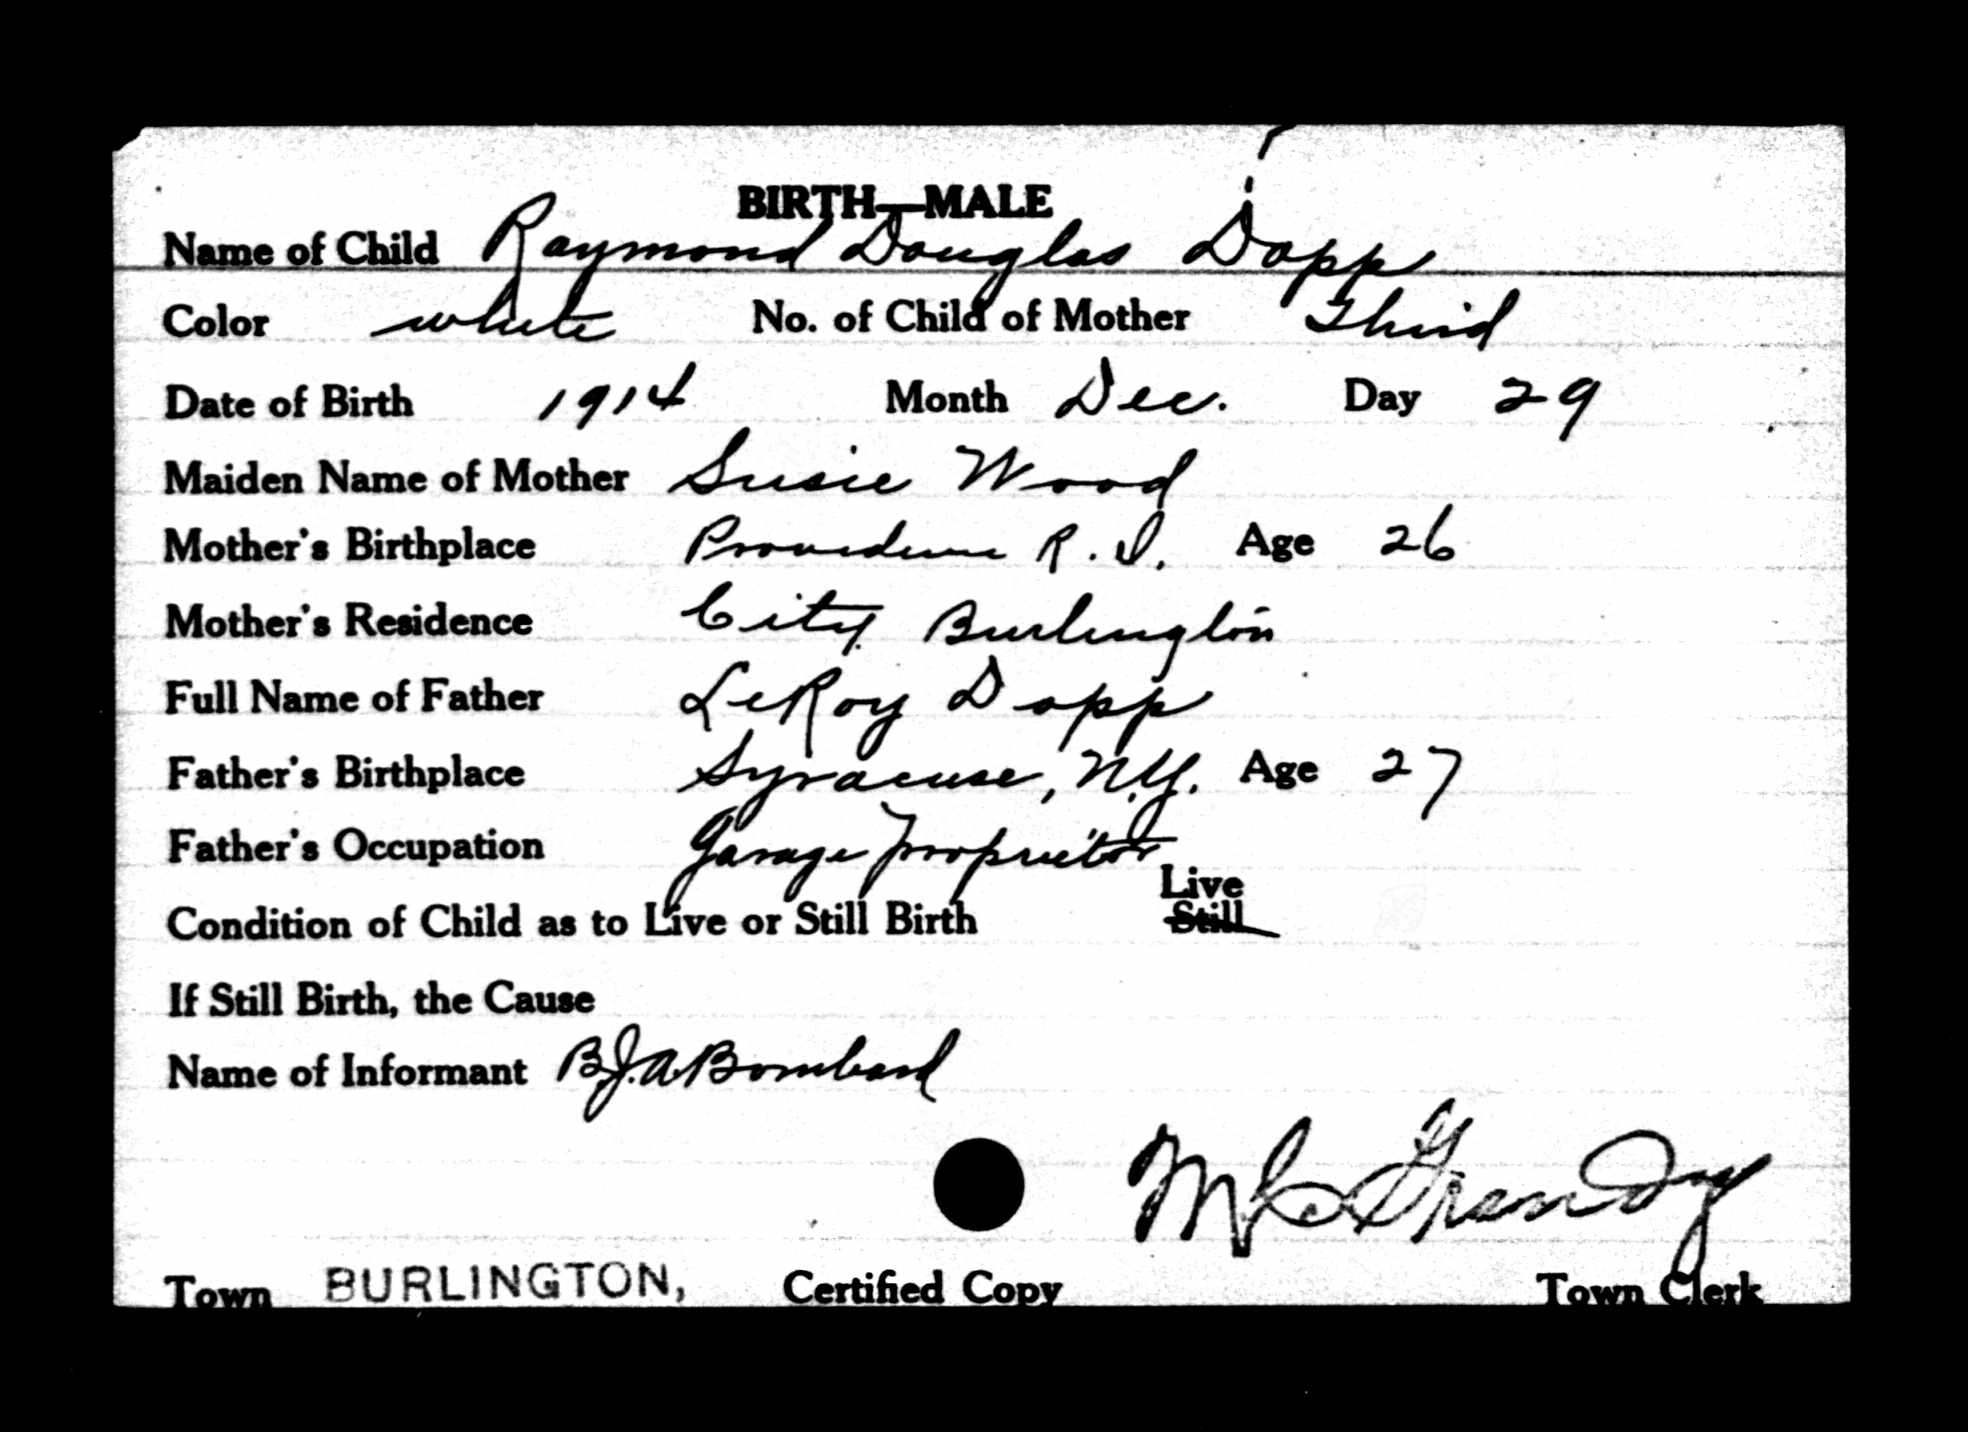 BIRTH—MALE
Name of Child Raymond Douglas Dopp
Color white No. of Child of Mother Third
Date of Birth 1914 Month Dec. Day 29
Maiden Name of Mother Susie Wood
Mother's Birthplace Providence R.I. Age 26
Mother's Residence City Burlington
Full Name of Father LeRoy Dopp
Father's Birthplace Syracuse, N.Y. Age 27
Father's Occupation Garage Proprietor
Live
Condition of Child as to Live or Still Birth Still
If Still Birth, the Cause
Name of Informant B.J.A. Bombard
M C Grandy
Town BURLINGTON, Certified Copy Town Clerk